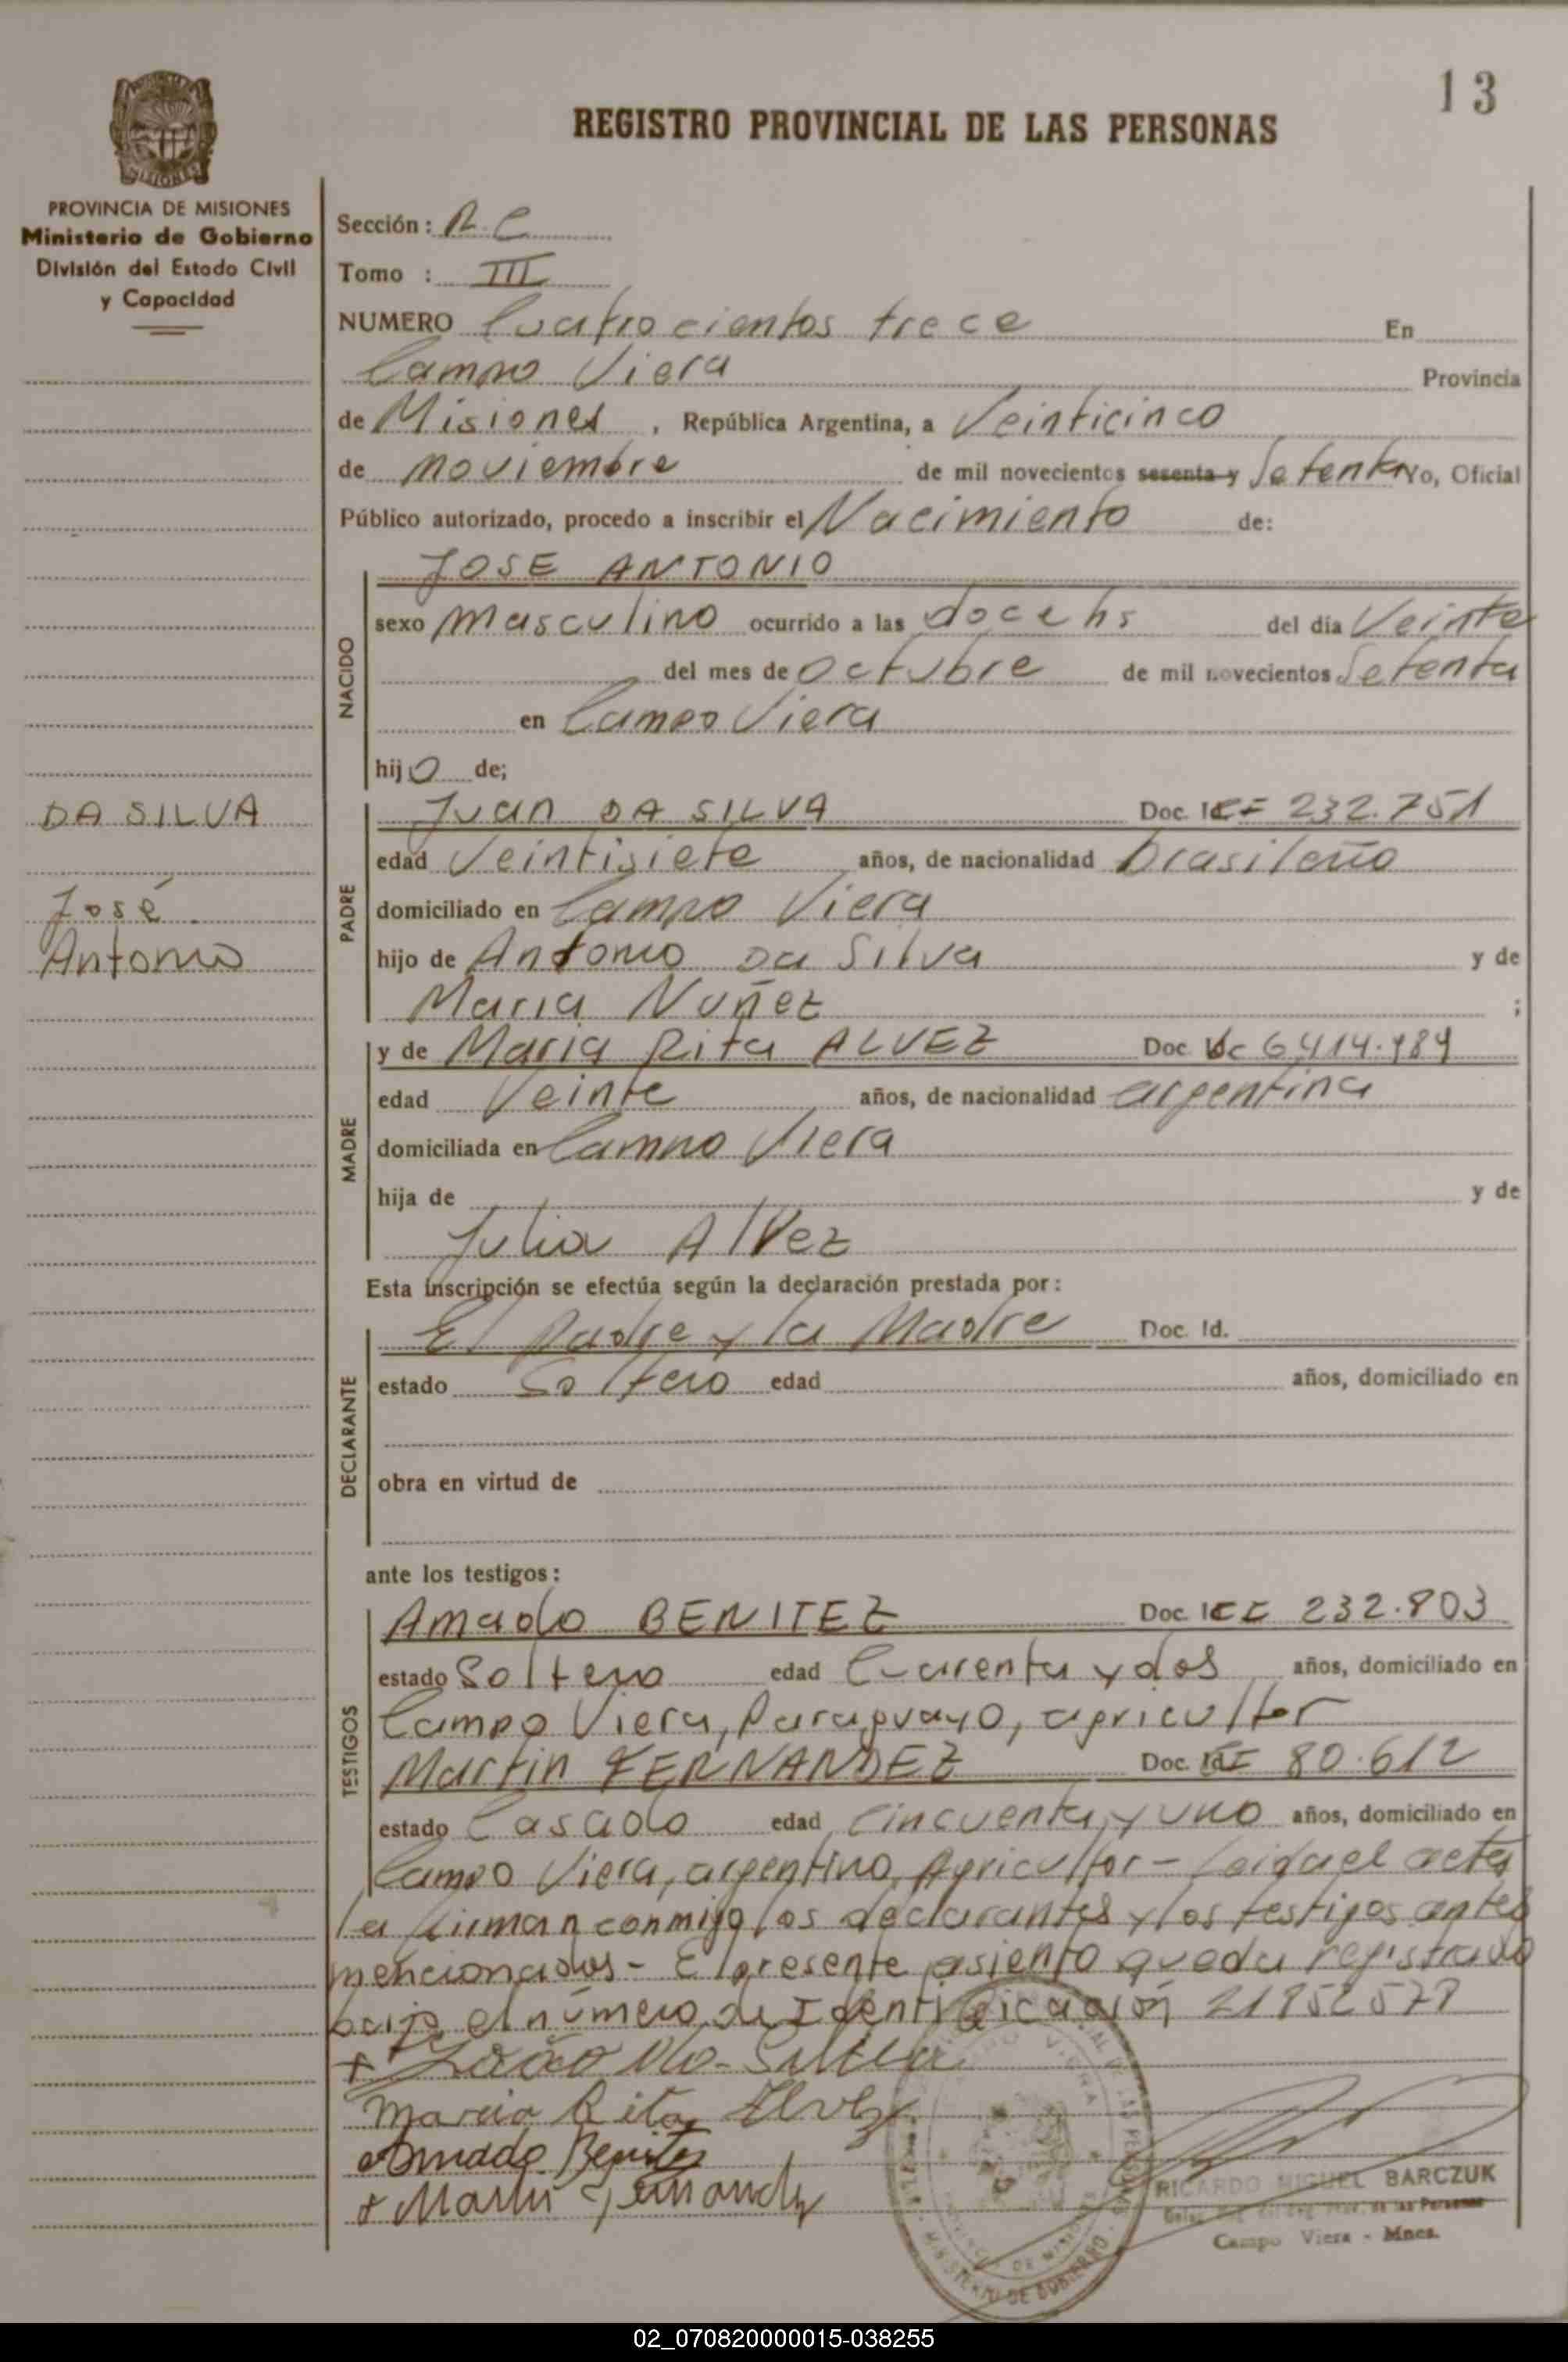 13
REGISTRO PROVINCIAL DE LAS PERSONAS
PROVINCIA DE MISIONES
Ministerio de Gobierno
División del Estado Civil
y Capacidad
DA SILVA
José
Antonio
Sección: R.C
Tomo : III
NUMERO Cuatrocientos trece En
Campo Viera Provincia
de Misiones, República Argentina, a Veinticinco
de noviembre de mil novecientos sesenta y Setenta Yo, Oficial
Público autorizado, procedo a inscribir el Nacimiento de:
NACIDO
JOSE ANTONIO
sexo masculino ocurrido a las doce hs del día Veinte
del mes de octubre de mil novecientos Setenta
en Campo Viera
hijo de;
PADRE
Juan DA SILVA Doc. 232.751
edad Veintisiete años, de nacionalidad brasileño
domiciliado en Campo Viera
hijo de Antonio Da Silva y de
Maria Nuñez ;
MADRE
y de Maria Rita ALVEZ Doc.
edad Veinte años, de nacionalidad argentina
domiciliada en Campo Viera
hija de y de
Julia Alvez
Esta inscripción se efectúa según la declaración prestada por:
DECLARANTE
El Padre y la Madre Doc. Id.
estado Soltero edad años, domiciliado en
obra en virtud de
ante los testigos:
TESTIGOS
Amado BENITEZ Doc. 232.803
estado Soltero edad Cuarenta y dos años, domiciliado en
Campo Viera, Paraguayo, agricultor
Martin FERNANDEZ Doc. 80.612
estado Casado edad cincuenta y uno años, domiciliado en
Campo Viera, argentino, Agricultor - Leida el acta
la firman conmigo los declarantes y los testigos antes
mencionados - El presente asiento queda registrado
bajo el número de Identificación 21852578
Maria Rita Alvez
Amado Benitez
+ Martin Fernandez
MINISTERIO DE GOBIERNO
RICARDO MIGUEL BARCZUK
de las Personas
Campo Viera - Mnes.
02_070820000015-038255